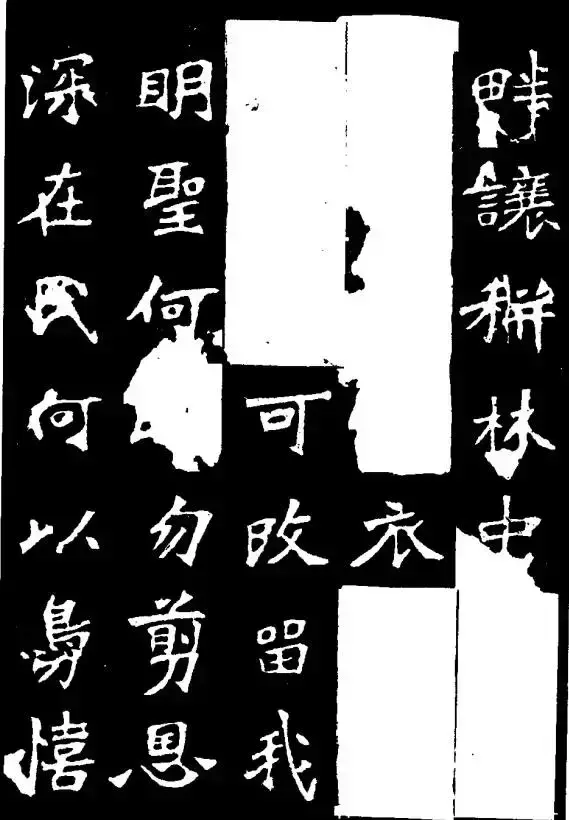 畔讓耕林中
衣
可改留我
明聖何勿剪恩
深在民何以鳧憘